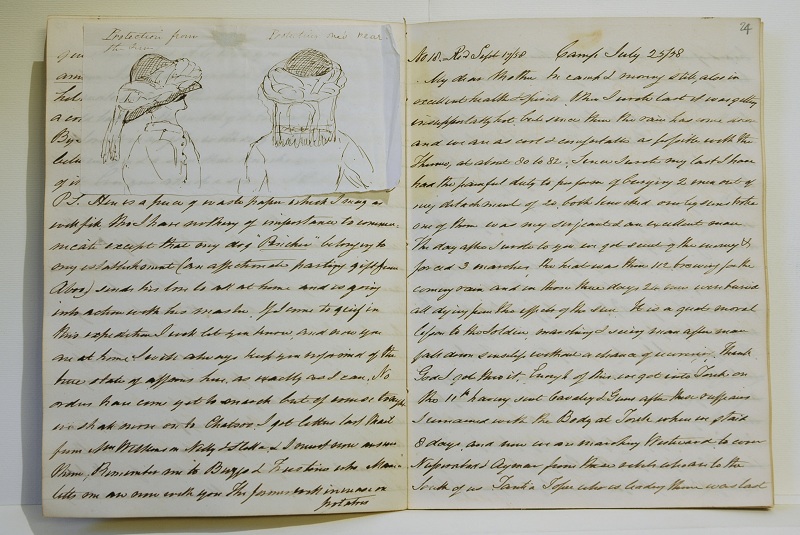 Protection from
the sun
Protection and near
P.S. Here is a piece of waste paper which I may as
well fill tho I have nothing of importance to commu-
nicate except that my dog "Pincher" belonging to
my establishment (an affectionate parting gift from
Abov) sends his love to all at home and is going
into action with his master. If I come to grief in
this expedition I will let you know, and now you
are at home I will always keep you informed of the
true state of affairs here, as exactly as I can. No
orders have come yet to march but of course
we shall move on to I got letters last Mail
from Mrs Wilkinson Nelly & Stella & I must now answer
them, Remember me to Briggs & who
are now with you The former
potatoes
24
No 18. Recd Sept 17/58 Camp July 25/58
My dear Mother In camp & moving still, also in
excellent health & spirits. When I wrote last it was getting
insupportably hot, but since then the rain has come down
and we are as cool & comfortable as possible with the
Therm. at about 80 to 82. Since I wrote my last I have
had the painful duty to perform of burying 2 men out of
my detachment of 20, both
one of them was my sergeant an excellent man.
The day after I wrote to you we got scent of the enemy &
forced 3 marches, the heat was then 112 brewing for the
coming rain and in those three days men were buried
all dying from the effects of the sun. It is a great moral
lesson to the Soldier, marching & seeing man after man
fall down senseless without a chance of recovery. Thank
God I got thro' it. Enough of this. we got into Tonk on
the 11th having sent Cavalry & Guns after these ruffians
I remained with the Body at Tonk where we staid
8 days. and now we are marching Westward to cover
Nusseerabad & Ajmere from these rebels who are to the
South of us Tantia Topee who is leading them was last